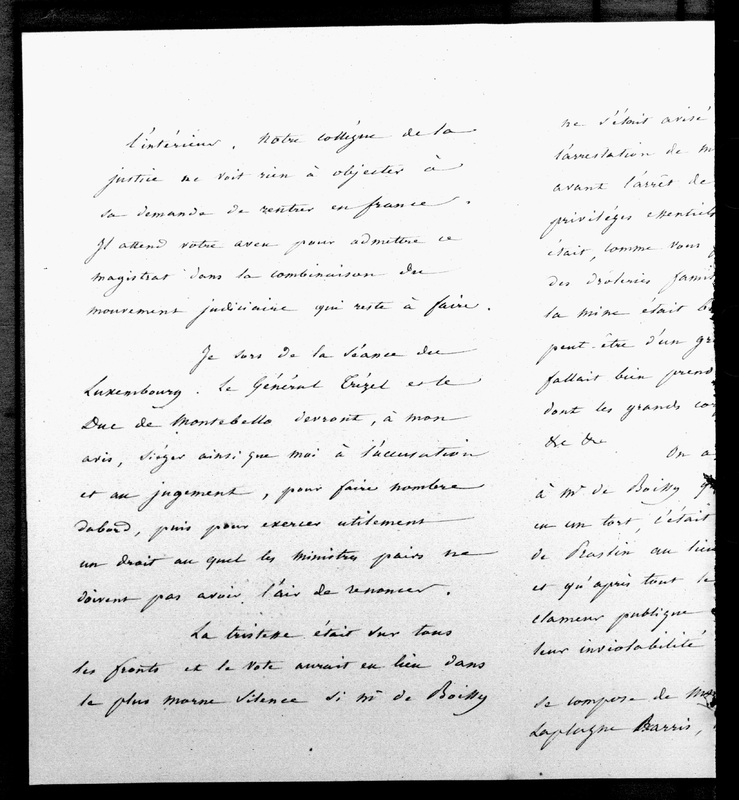 l'intérieur. Notre collègue de la
justice ne voit rien à objecter à
sa demande de rentrer en france.
Il attend votre aveu pour admettre ce
magistrat dans la combinaison du
mouvement judiciaire qui reste à faire.
Je sors de la séance du
Luxembourg. Le Général Trézel et le
Duc de Montebello devront, à mon
avis, siéger ainsi que moi à l'accusation
et au jugement, pour faire nombre
dabord, puis pour exercer utilement
un droit au quel les ministres pairs ne
doivent pas avoir l'air de renoncer.
La tristesse était sur tous
les fronts et le vote aurait eu lieu dans
le plus morne silence si Mr de Boissy
ne s'était avisé
l'arrestation de M
avant l'arrêt de
privilèges essentiels
était, comme vous
des drôleries famil
la mine était
peut-être d'un gr
fallait bien prend
dont les grands cor
&c &c
On a
à Mr de Boissy
eu un tort, c'était
de Praslin au lieu
et qu'après tout le
clameur publique
leur inviolabilité
se compose de
Laplagne Barris,